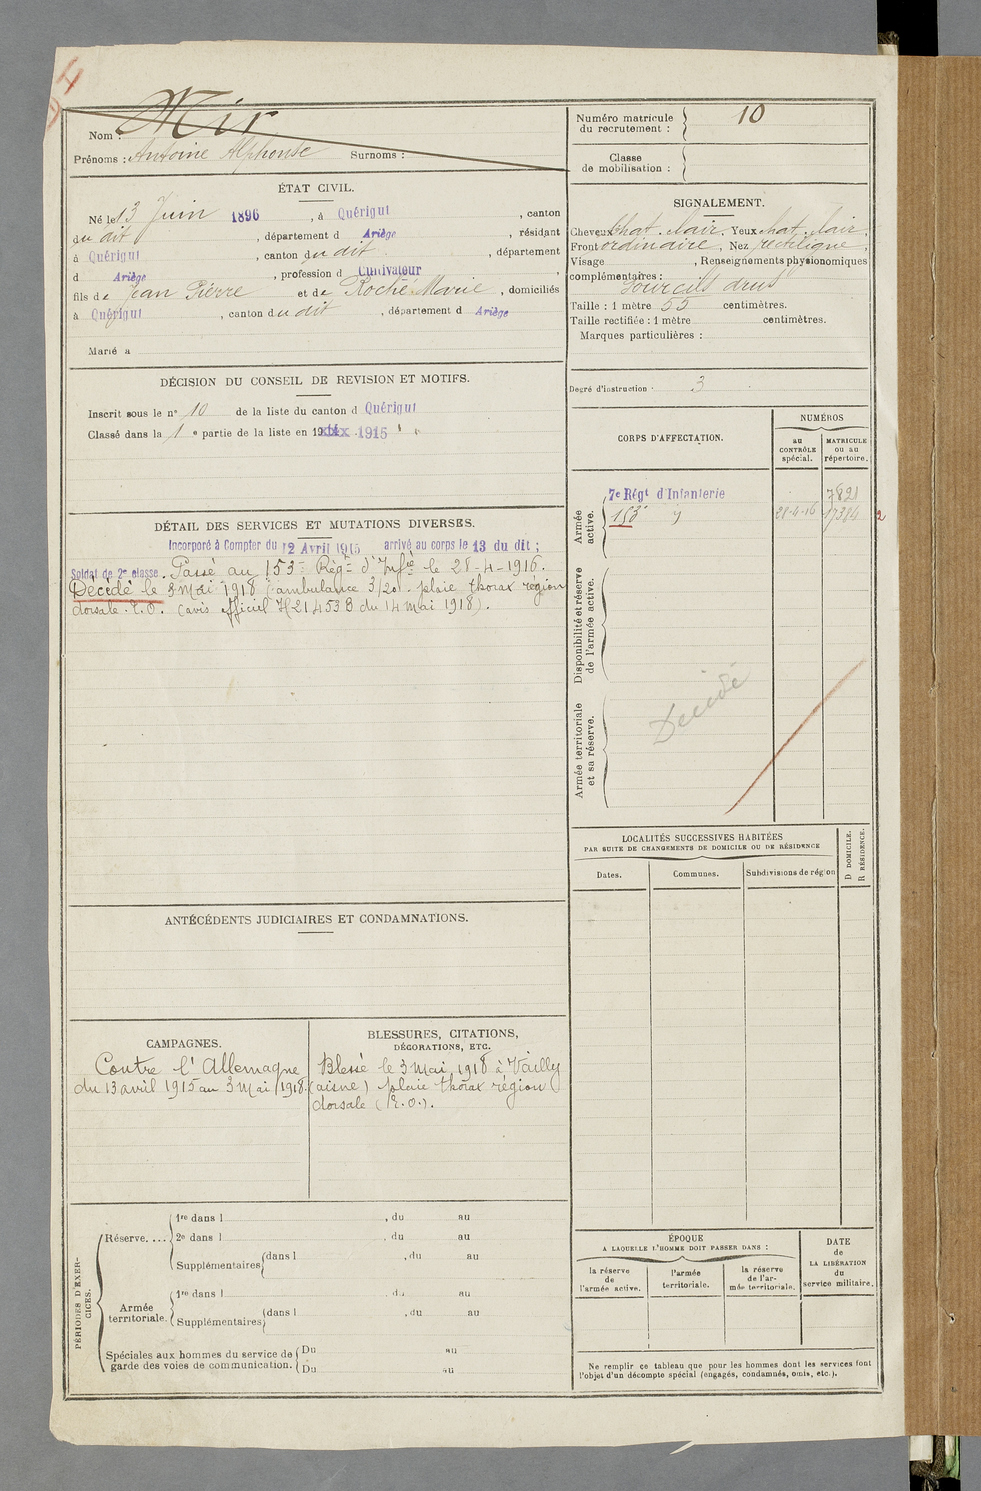 Nom : Mir
Prénoms : Antoine Alphonse Surnoms :
Numéro matricule du recrutement : 10
Classe de mobilisation :
ÉTAT CIVIL.
Né le 13 Juin 1896, à Quérigut, canton
du dit, département d Ariège, résidant
à Quérigut, canton du dit, département
d Ariège, profession d Cultivateur,
fils de Jean Pierre et de Roché Marie, domiciliés
à Quérigut, canton du dit, département d Ariège
Marié à
SIGNALEMENT.
Cheveux chat. clair. Yeux chat. clair,
Front ordinaire, Nez rectiligne,
Visage , Renseignements physionomiques
complémentaires :
Sourcils drus
Taille : 1 mètre 55 centimètres.
Taille rectifiée : 1 mètre centimètres.
Marques particulières :
Degré d'instruction : 3
DÉCISION DU CONSEIL DE REVISION ET MOTIFS.
Inscrit sous le n° 10 de la liste du canton d Quérigut
Classé dans la 1 e partie de la liste en 19 1915
CORPS D'AFFECTATION.
NUMÉROS
au CONTRÔLE spécial.
MATRICULE ou au répertoire.
Armée active.
7e Régt d'Infanterie 7821
153e 28-4-16 17384 2
Disponibilité et réserve de l'armée active.
Armée territoriale et sa réserve.
Décédé
DÉTAIL DES SERVICES ET MUTATIONS DIVERSES.
Incorporé à Compter du 12 Avril 1915 arrivé au corps le 13 du dit ;
Soldat de 2e classe. Passé au 153e Régt d'Infie le 28-4-1916.
Décédé le 3 mai 1918 (ambulance 3/20). plaie thorax région
dorsale. E.O. (avis officiel H21453B du 14 mai 1918).
LOCALITÉS SUCCESSIVES HABITÉES
PAR SUITE DE CHANGEMENTS DE DOMICILE OU DE RÉSIDENCE
Dates. Communes. Subdivisions de région
D DOMICILE.
R RÉSIDENCE.
ANTÉCÉDENTS JUDICIAIRES ET CONDAMNATIONS.
CAMPAGNES.
Contre l'Allemagne
du 13 avril 1915 au 3 Mai 1918.
BLESSURES, CITATIONS,
DÉCORATIONS, ETC.
Blessé le 3 Mai 1918 à Vailly
(aisne) plaie thorax région
dorsale (E.O.).
PÉRIODES D'EXERCICES.
Réserve....
1re dans l , du au
2e dans l , du au
Supplémentaires dans l , du au
Armée territoriale.
1re dans l , du au
Supplémentaires dans l , du au
Spéciales aux hommes du service de garde des voies de communication.
Du au
Du au
ÉPOQUE
A LAQUELLE L'HOMME DOIT PASSER DANS :
la réserve de l'armée active.
l'armée territoriale.
la réserve de l'armée territoriale.
DATE de LA LIBÉRATION du service militaire.
Ne remplir ce tableau que pour les hommes dont les services font
l'objet d'un décompte spécial (engagés, condamnés, omis, etc.).